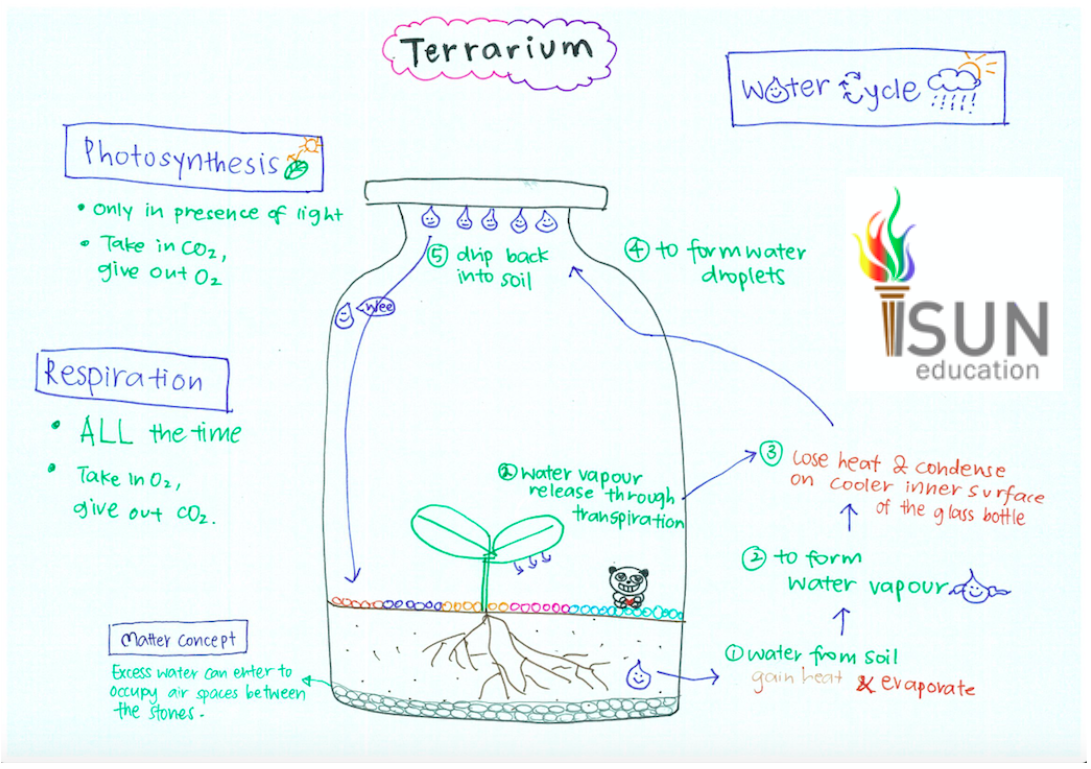 Terrarium
Water Cycle
Photosynthesis
• Only in presence of light
• Take in CO₂,
give out O₂
Respiration
• ALL the time
• Take in O₂,
give out CO₂.
Matter Concept
Excess water can enter to
occupy air spaces between
the stones.
⑤ drip back
into soil
Wee
② Water vapour
release through
transpiration
④ to form water
droplets
ISUN
education
③ Lose heat & condense
on cooler inner surface
of the glass bottle
② to form
water vapour
① water from soil
gain heat & evaporate